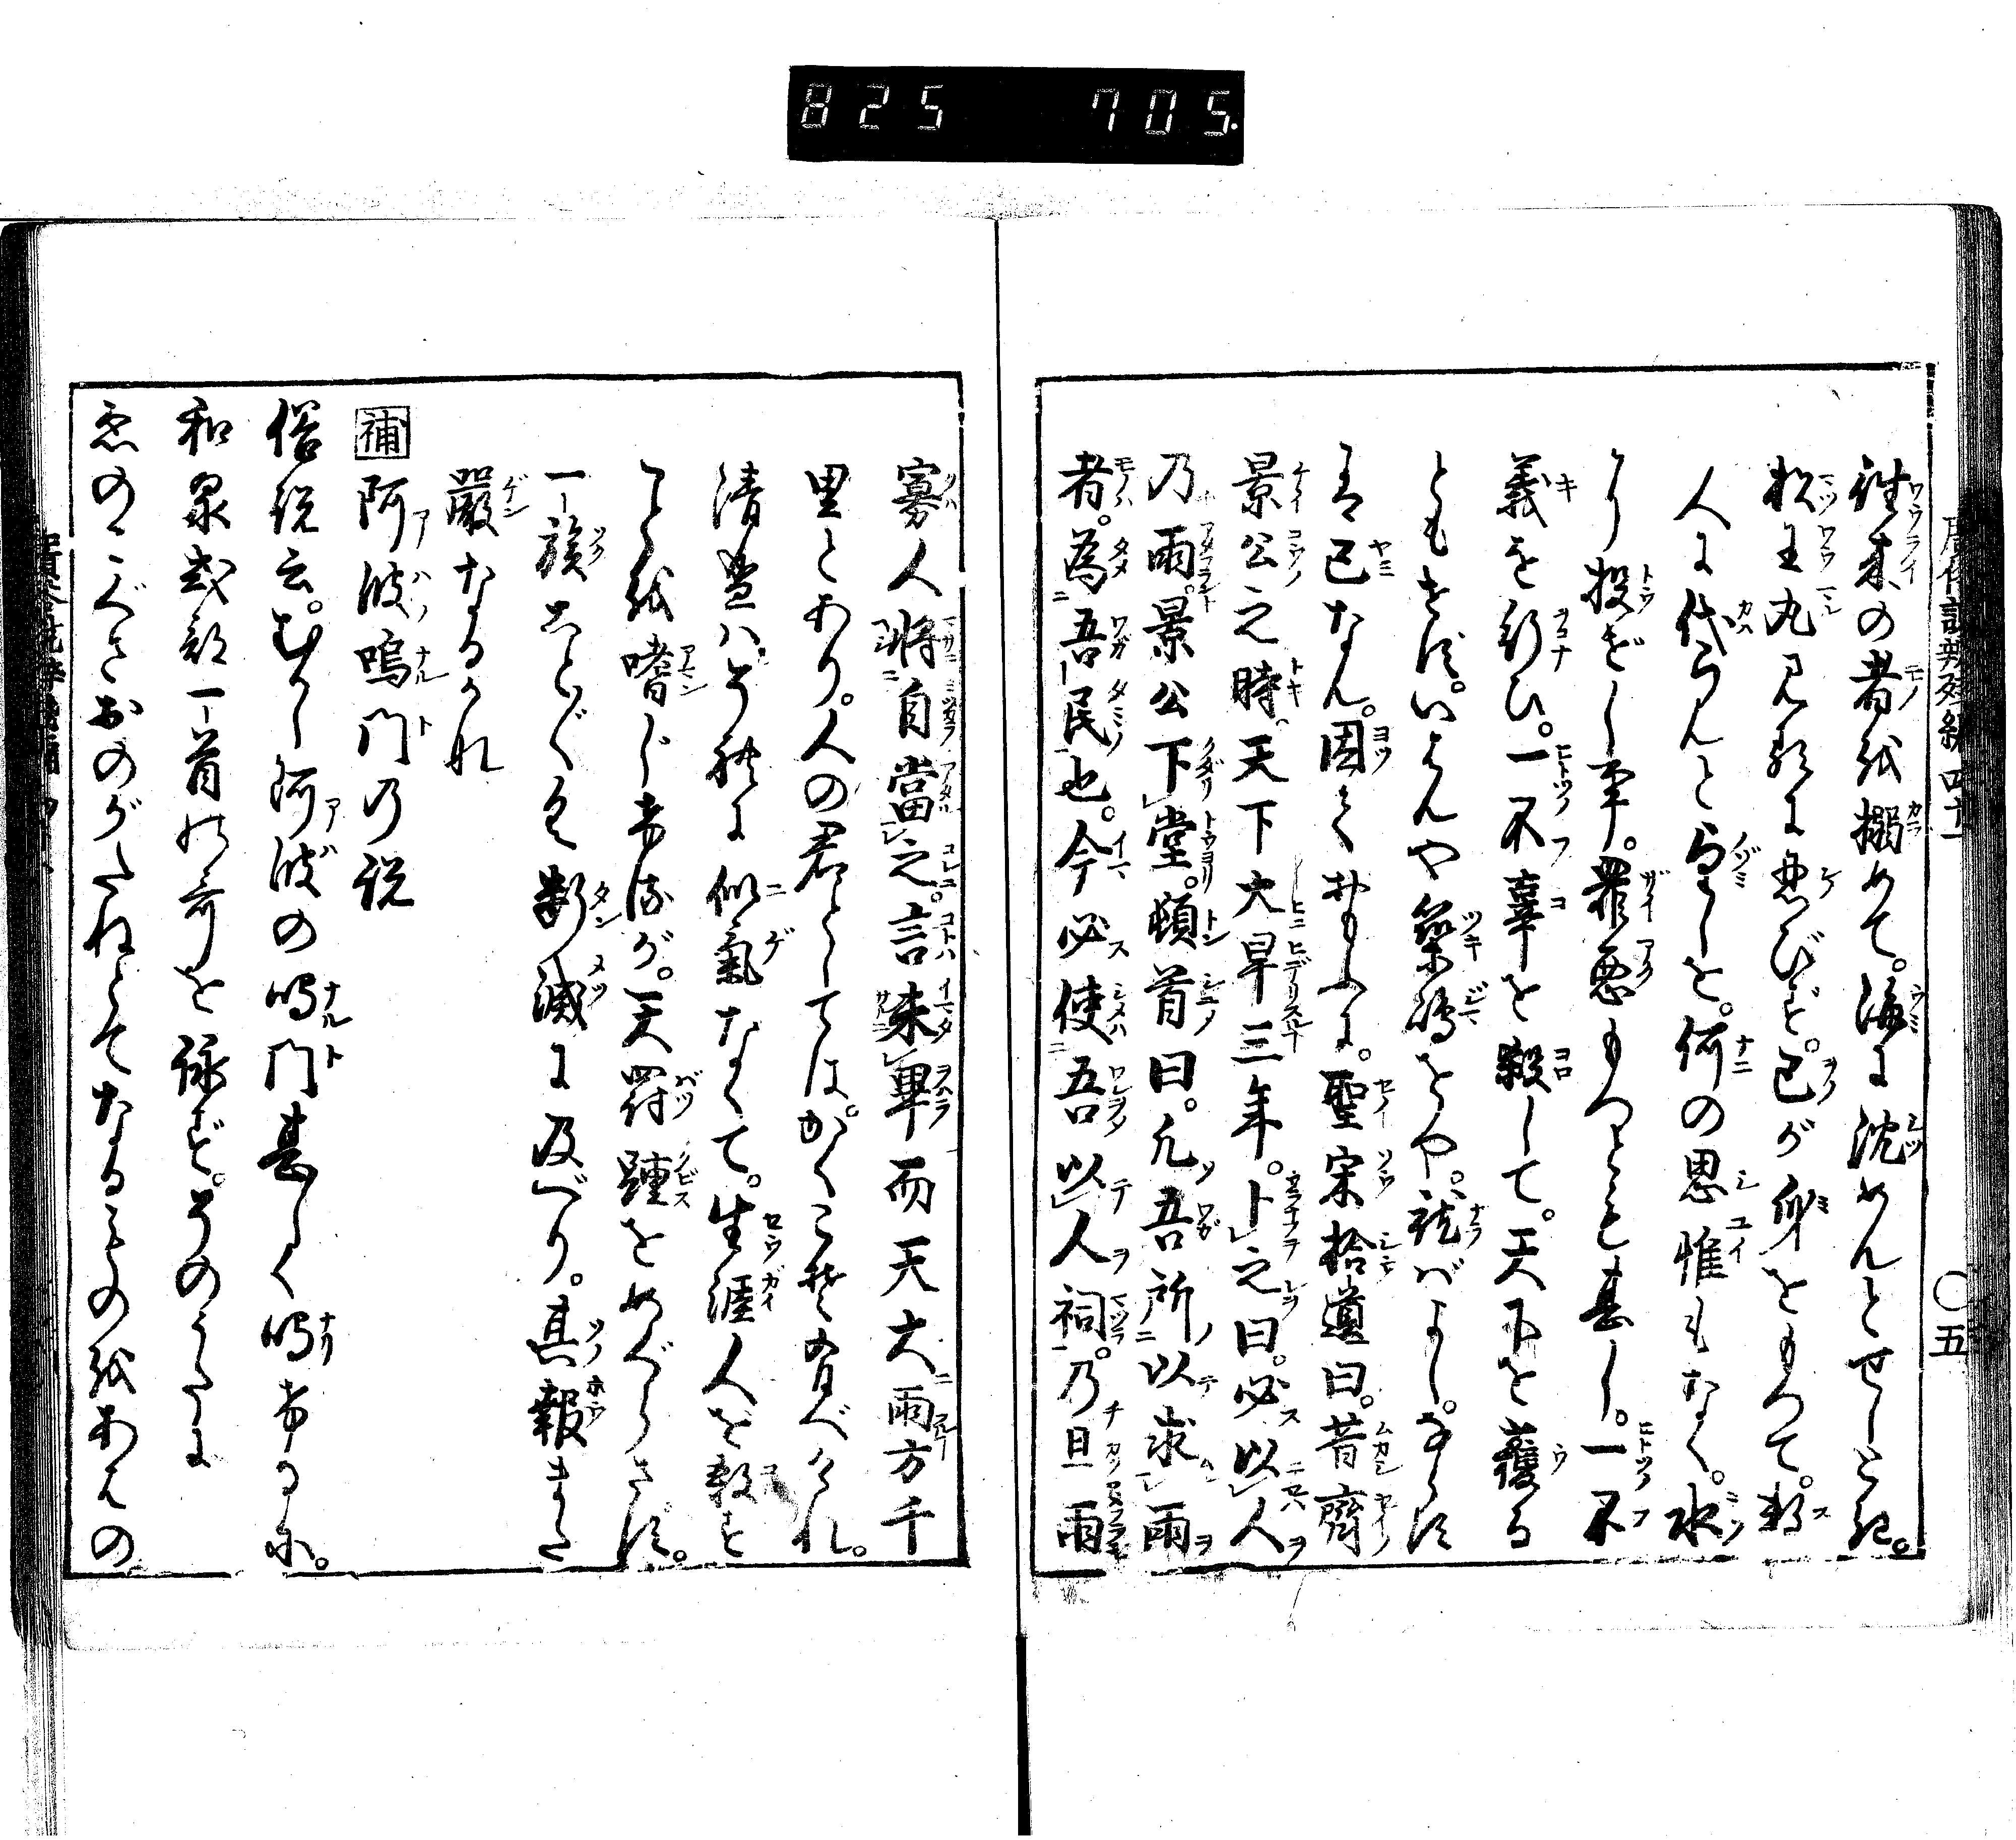 825 705.
往来の者を搦めて。海に沈めんとせしとき。
松王丸見聞に忍びず。己が身をもつて。数
人に代らんと望しを。何の思惟もなく。水
より投ぜし事。罪悪もつとも甚し。一不
義を行ひ。一不辜を殺して。天下を獲る
ともせず。いはんや築嶋をや。就ばよし。ならず
は已なん。因ておもふに。聖宋拾遺曰。昔齊
景公之時。天下大旱三年。卜之曰。必以人
乃雨。景公下堂。頓首曰。凡吾所以求雨
者。為吾民也。今必使吾以人祠。乃且雨
寡人将自當之。言未卒而天大雨方千
里とあり。人の君としてはかくこそ有べけれ。
清盛はその德に似氣なくて。生涯人を殺す
ことを嗜しものが。天罰踵をめぐらさず。
一族ことごとく断滅に及べり。其報また
嚴なるかな
補 阿波鳴門の説
俗説云。むかし阿波の鳴門甚しく鳴ける に。
和泉式部一首の哥を詠ず。そのうたに
ゑのこぐさおのがたねとてなるものをあはの
五